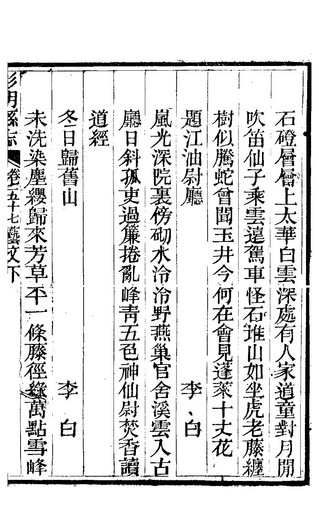 石磴層層上太華白雲深處有人家道童對月閒
吹笛仙子乘雲遠駕車怪石堆山如坐虎老藤纏
樹似騰蛇曾聞玉井今何在會見蓬萊十丈花
題江油尉廳 李白
嵐光深院裏傍砌水泠泠野燕巢官舍溪雲入古
廳日斜孤吏過簾捲亂峰靑五色神仙尉焚香讀
道經
冬日歸舊山 李白
未洗染塵纓歸來芳草平一條藤徑綠萬點雪峰
彰明縣志 卷五十七藝文下